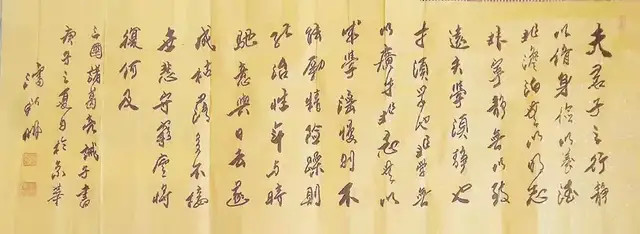 夫君子之行靜
以修身儉以養德
非澹泊無以明志
非寧靜無以致
遠夫學須靜也
才須學也非學無
以廣才非志無以
成學淫慢則不
能勵精險躁則
治性年与時
馳意與日去遂
成枯落多不接
世悲守窮廬將
復何及
三國諸葛亮誡子書
庚子之夏月於京華